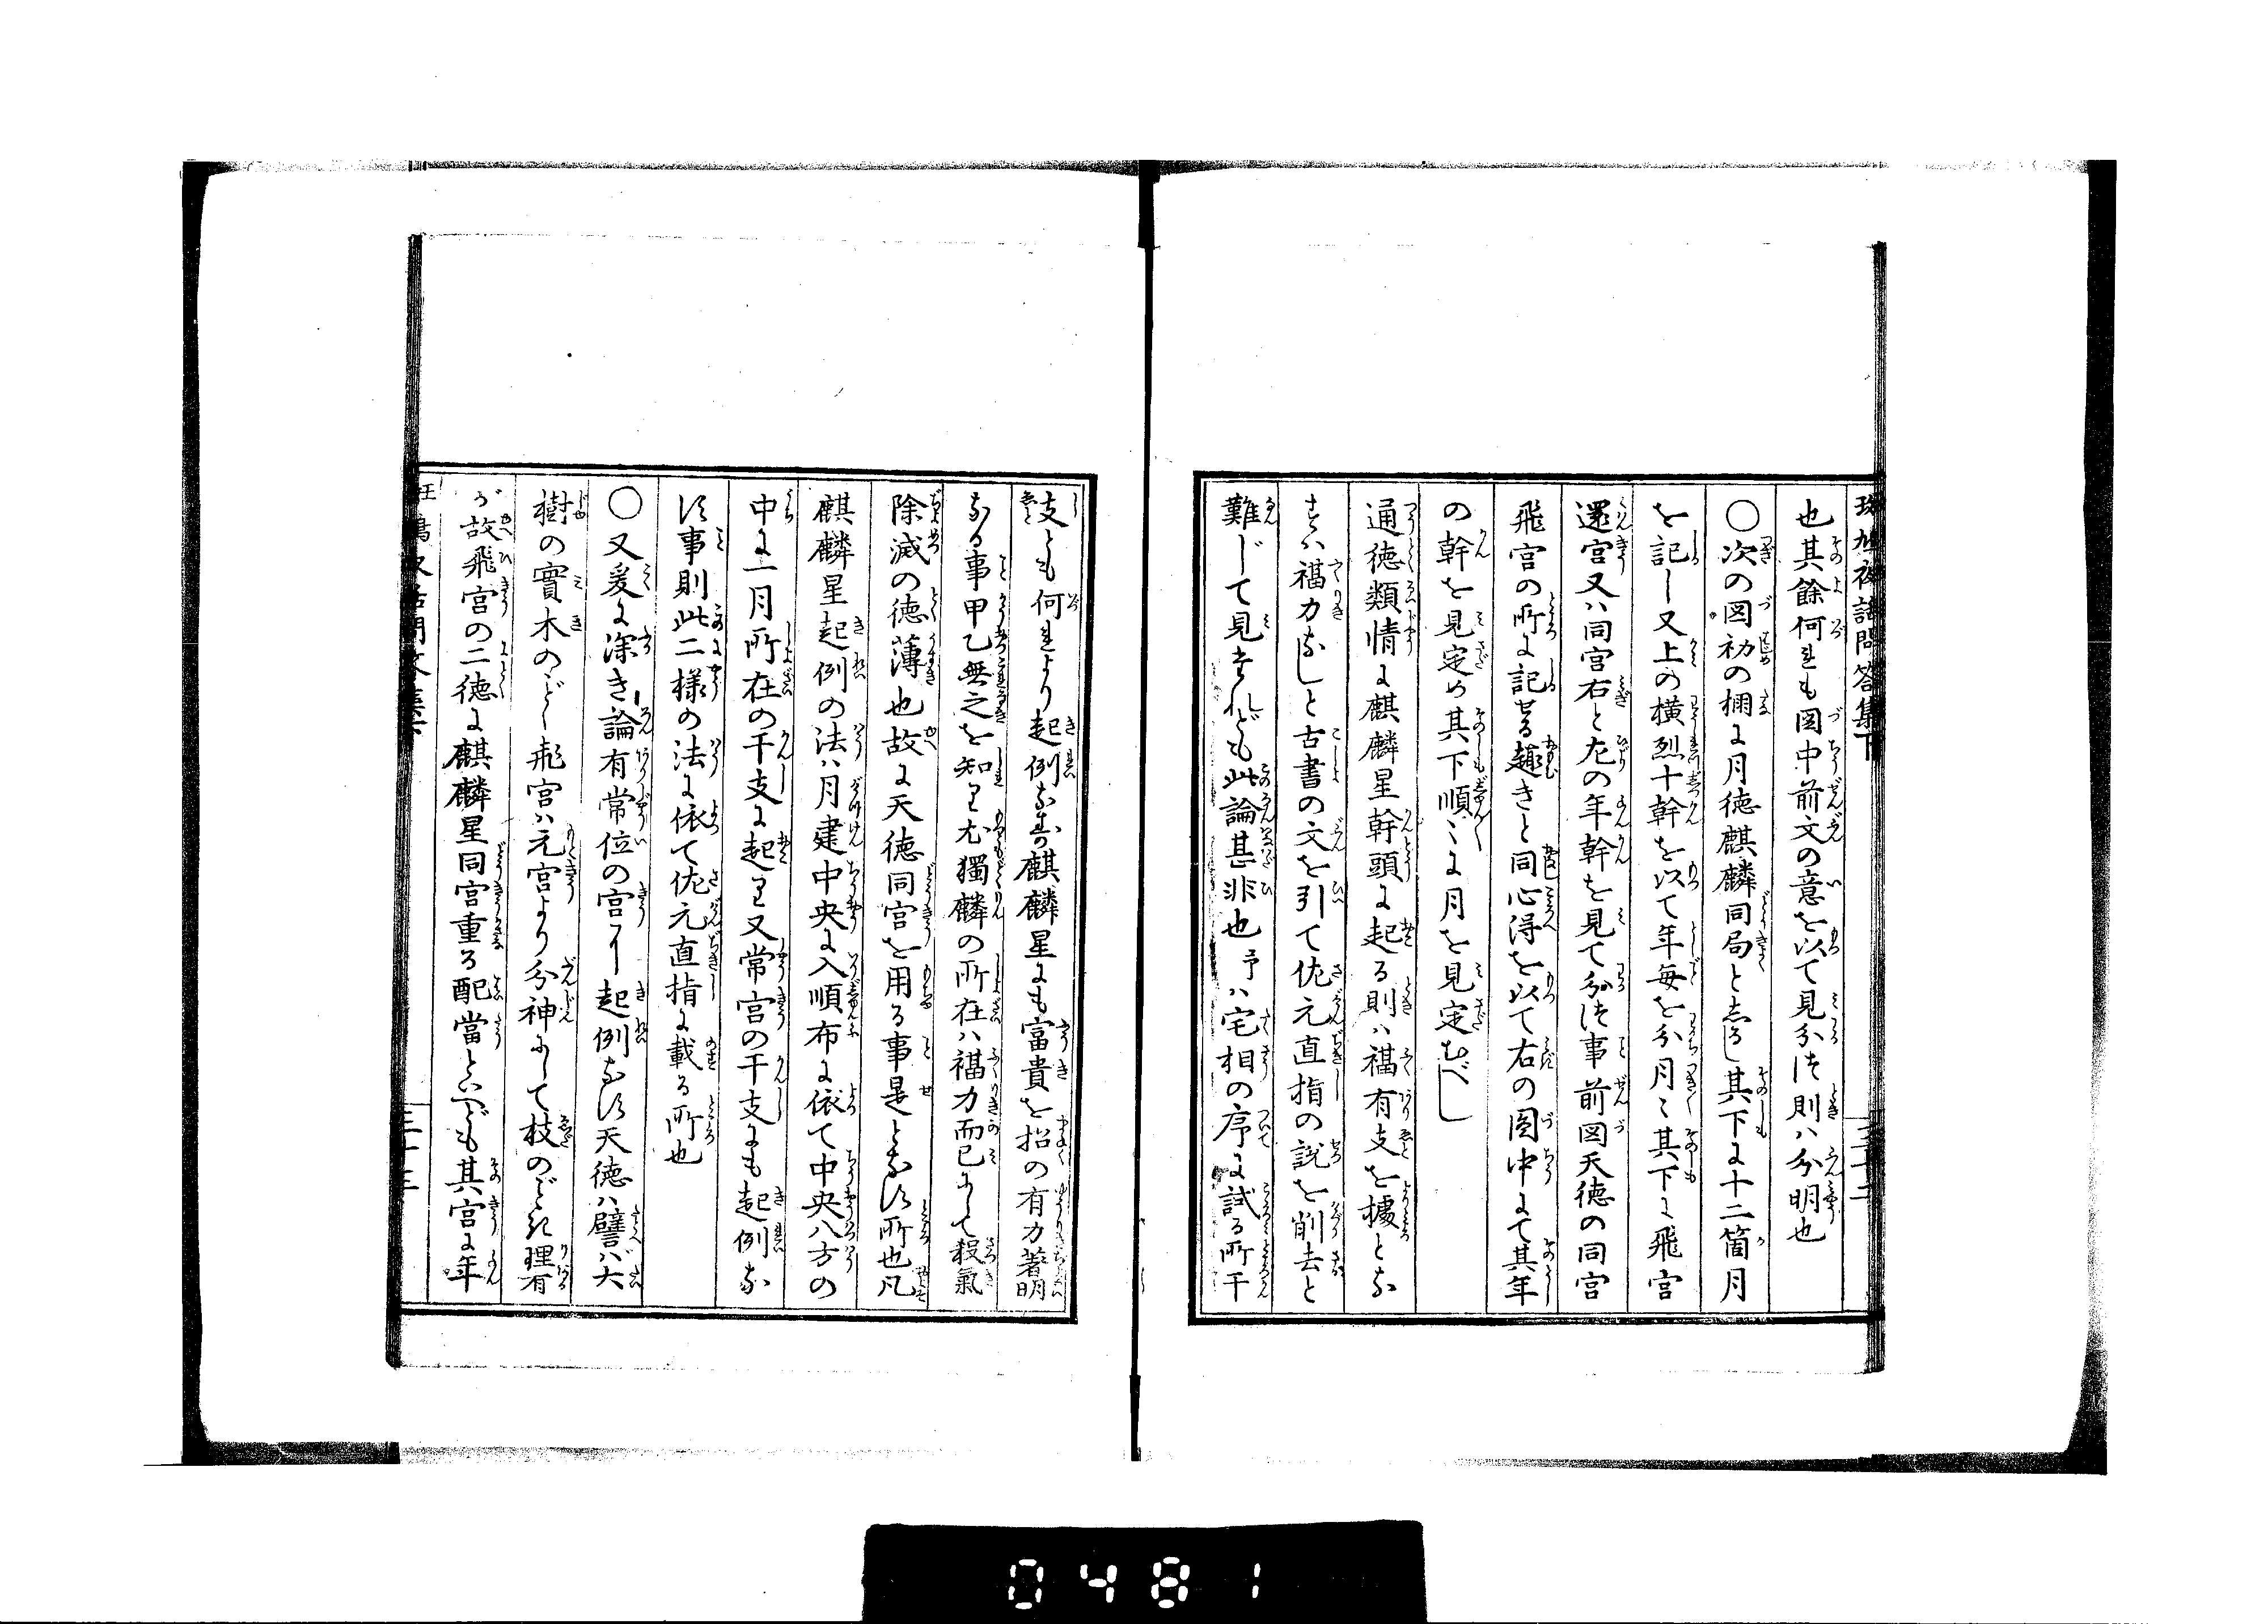 也其餘何れも図中前文の意を以て見分す則ハ分明也
〇次の図初の棚に月徳麒麟同局としるし其下に十二箇月
を記し又上の横烈十幹を以て年毎を分月々其下に飛宮
還宮又ハ同宮右と左の年幹を見て分す事前図天徳の同宮
飛宮の所に記せる趣きと同心得を以て右の圖中にて其年
の幹を見定め其下順々に月を見定むべし
通徳類情に麒麟星幹頭に起る則ハ福有支を據とな
すハ福力なしと古書の文を引て佐元直指の説を削去と
難じて見きれども此論甚非也予ハ宅相の序に試る所干
支とも何れより起例なす麒麟星にも富貴を招の有力著明
なる事甲乙無之を知れ尤獨麟の所在ハ福力而已にして殺氣
除滅の徳薄也故に天徳同宮を用る事是とす所也凡
麒麟星起例の法ハ月建中央に入順布に依て中央八方の
中に一月所在の干支に起れ又常宮の干支にも起例な
す事則此二様の法に依て佐元直指に載る所也
〇又爰に深き論有常位の宮に起例なす天徳ハ譬ば大
樹の實木のごとし飛宮ハ元宮より分神にして枝のごとき理有
が故飛宮の二徳に麒麟星同宮重る配當といへども其宮に年
問答集下
三十二
三十三
0481